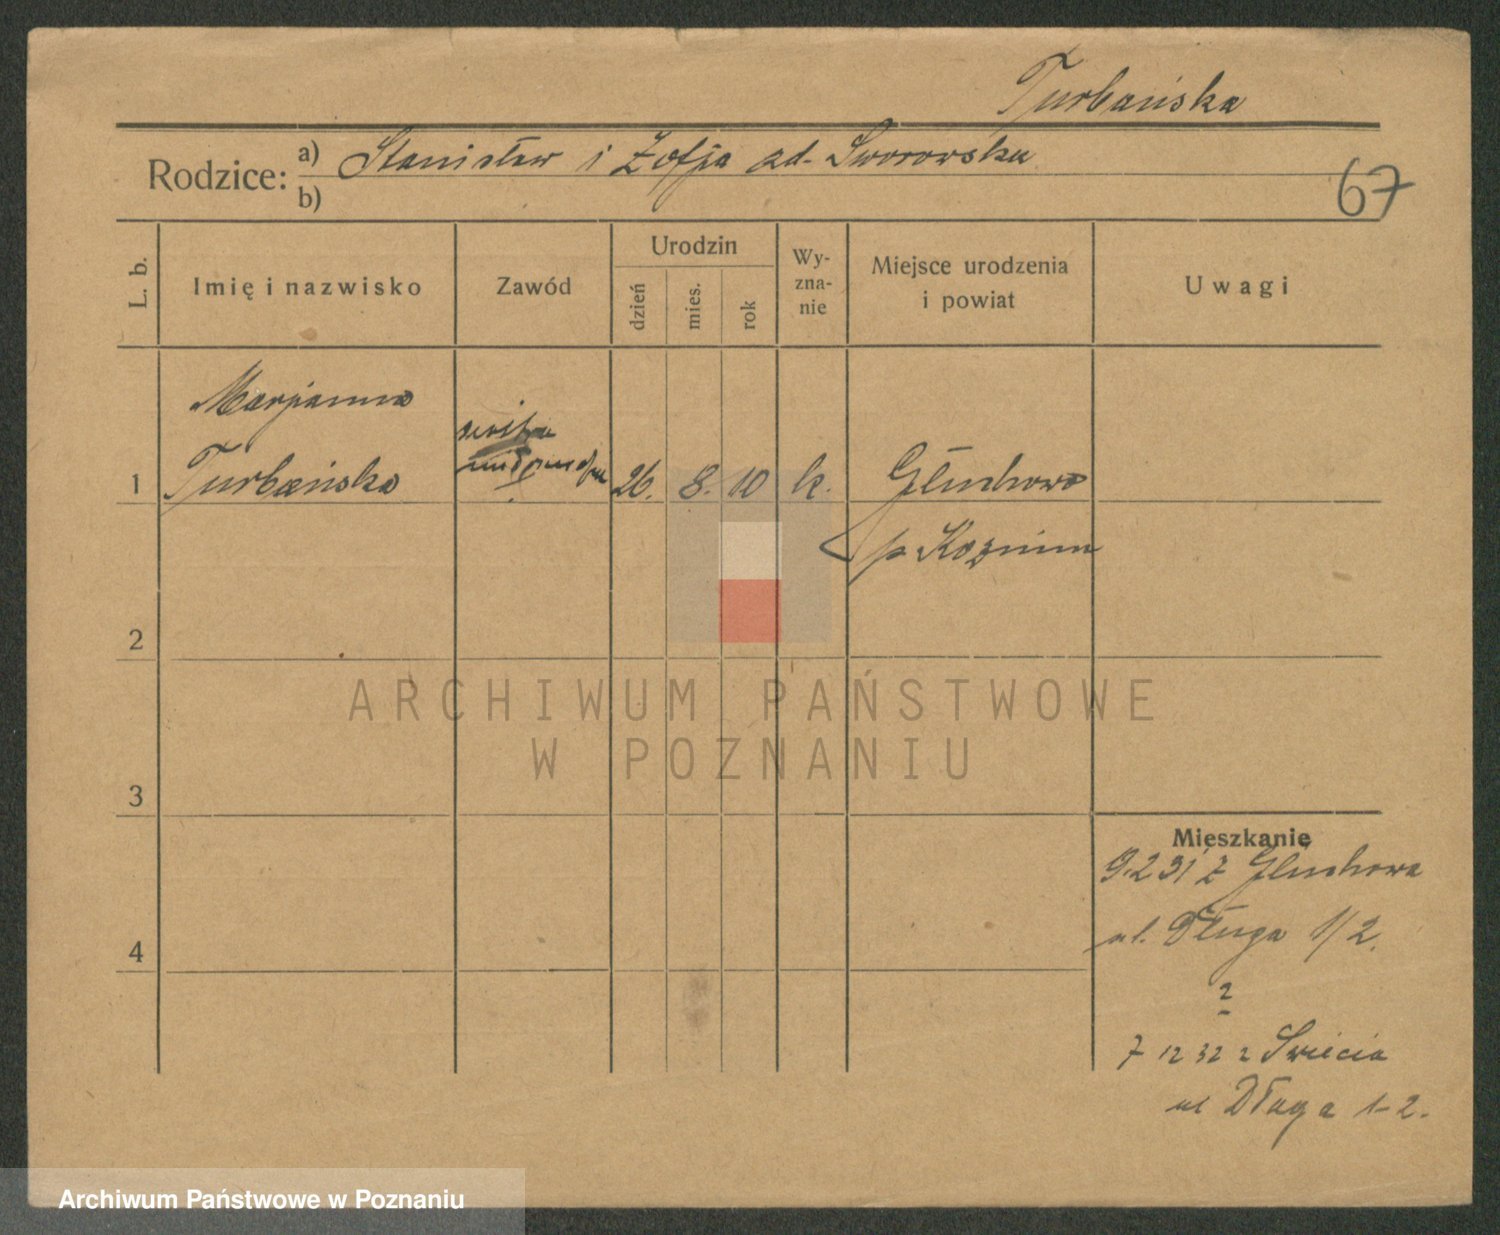 Turbańska
Rodzice: a) Stanisław i Zofja zd. Sworowska
b)
67
L. b.
Imię i nazwisko
Zawód
Urodzin
dzień
mies.
rok
Wy-
zna-
nie
Miejsce urodzenia
i powiat
Uwagi
Marjanna
1 Turbańska 26. 8. 10 k. Głuchowo
p Kozmin
2
ARCHIWUM PAŃSTWOWE
W POZNANIU
3
Mieszkanie
9.2 31 z Głuchowa
ul. Długa 1/2.
4
2
7 12 32 z Swiecia
ul Długa 1-2.
Archiwum Państwowe w Poznaniu